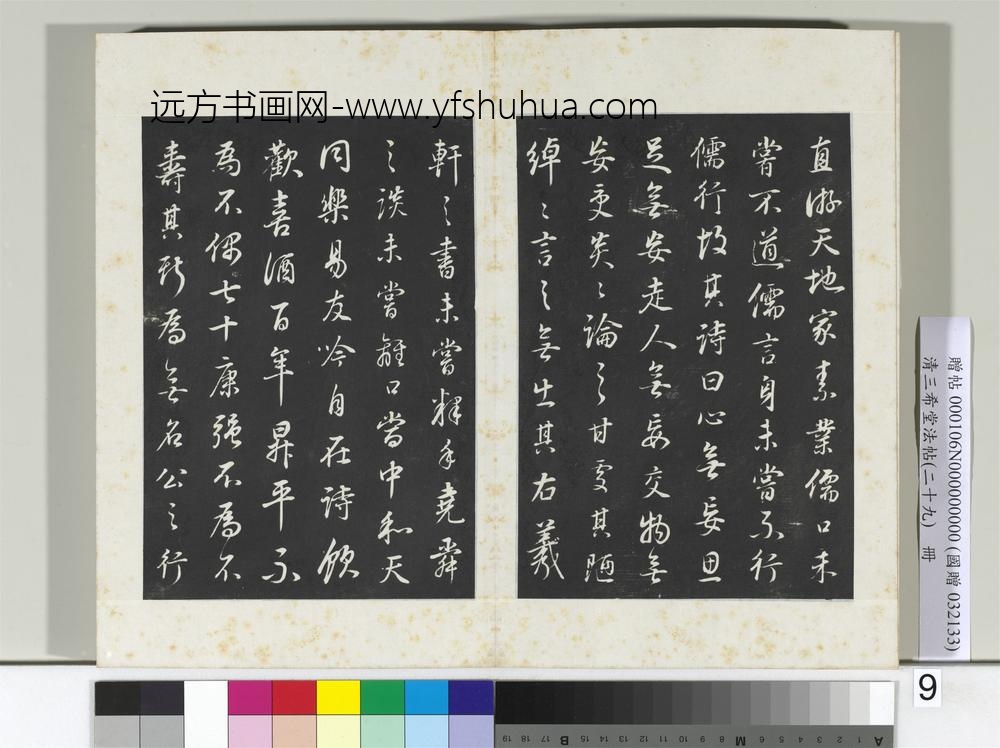 远方书画网-www.yfshuhua.com
直游天地家素業儒口未
嘗不道儒言身未嘗不行
儒行故其詩曰心無妄思
足無妄走人無妄交物無
妄受炎〻論之甘處其陋
綽〻言之無出其右羲
軒之書未嘗釋手堯舜
之談未嘗離口當中和天
同樂易友吟自在詩飲
歡喜酒百年昇平不
為不偶七十康強不為不
壽其斯為無名公之行
贈帖 000106N0000000000 (國贈 032133)
清三希堂法帖(二十九) 冊
9